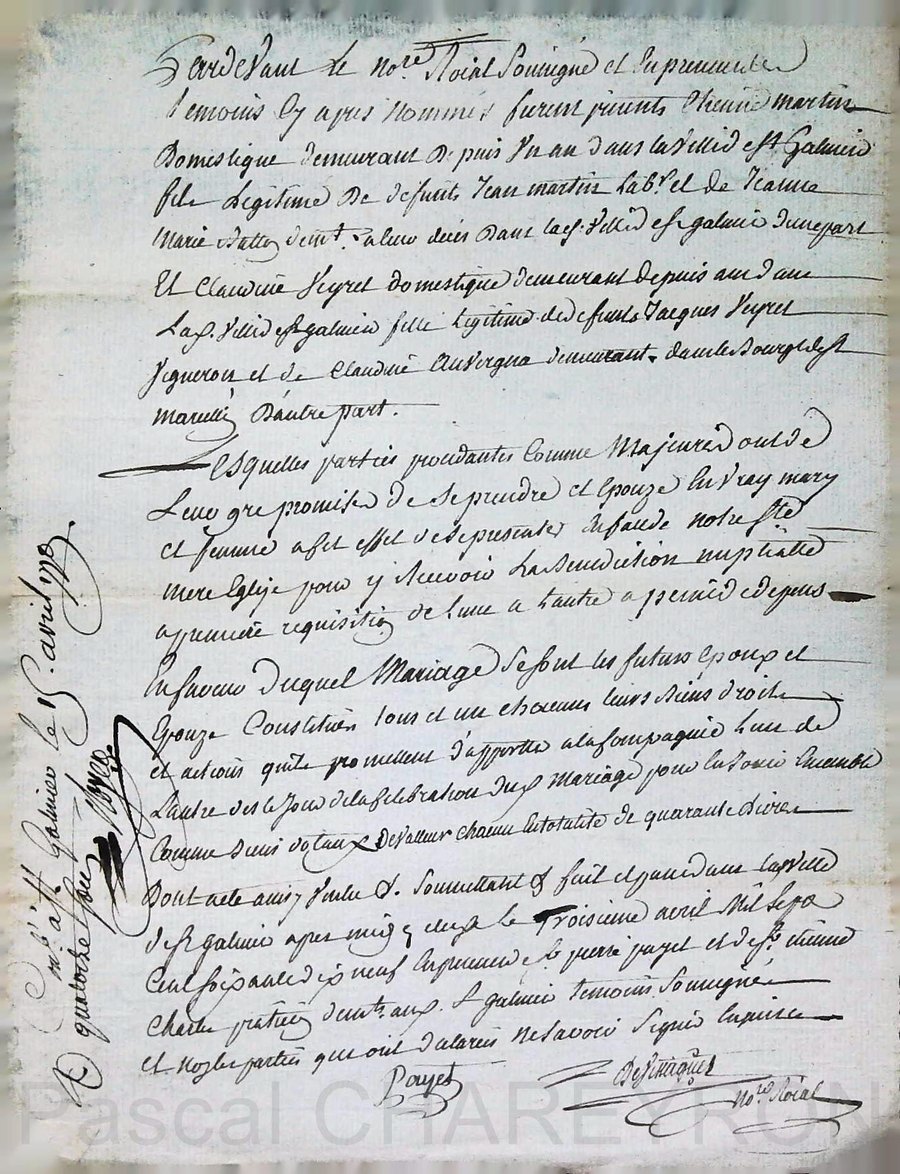 Pardevant le no.re Roial Soussigné et en presence des
temoins Cy apres Nommés furent presents Etienne martin
Domestique demeurant Depuis Un an dans la Ville de st Galmier
fils Legitime De defunts Jean martin Lab.r et de Jeanne
Marie demt. a leur deces Dans la s. Ville de st galmier dune part
Et Claudine Veyret domestique demeurant depuis un an dans
La s. Ville de st galmier fille Legitime de defunts Jacques Veyret
Vigneron et de Claudine Auvergne demeurant dans le Bourg de st
Marcellin D'autre part.
Lesquelles parties procedantes Comme Majeures ont de
Leur gre promis de se prendre et Epouzer En Vray mary
et femme a cet effet de se presenter En face de notre Ste
mere Eglise pour y Recevoir La Benediction nuptialle
a premiere requisition de l'une a L'autre a peine de depens
En faveur Duquel Mariage se sont les futurs Epoux et
Epouze Constitués tous et un chacuns leurs Biens droits
et actions quils promettent d'apporter a la Compagnie L'un de
L'autre des le Jour de la Celebration dud. Mariage pour En Jouir Ensemble
Comme Biens dotaux De Valleur chacun En totalité de quarante Livres
Dont acte ainsy Voulu &. Soumettant & fait et passé dans la Ville
de st galmier apres midy le Troisieme avril Mil Sept
Cent soixante dix neuf En presence de sr pierre poyet et de sr etienne
Charles praticien demts. aud. St galmier temoins Soussignés
et Non les parties qui ont declarés ne Savoir Signer Enquises
Poyet
No.re Roial
Con.lé a St Galmier le 15. avril 1779
R quatorze sous
Pascal CHAREYRON